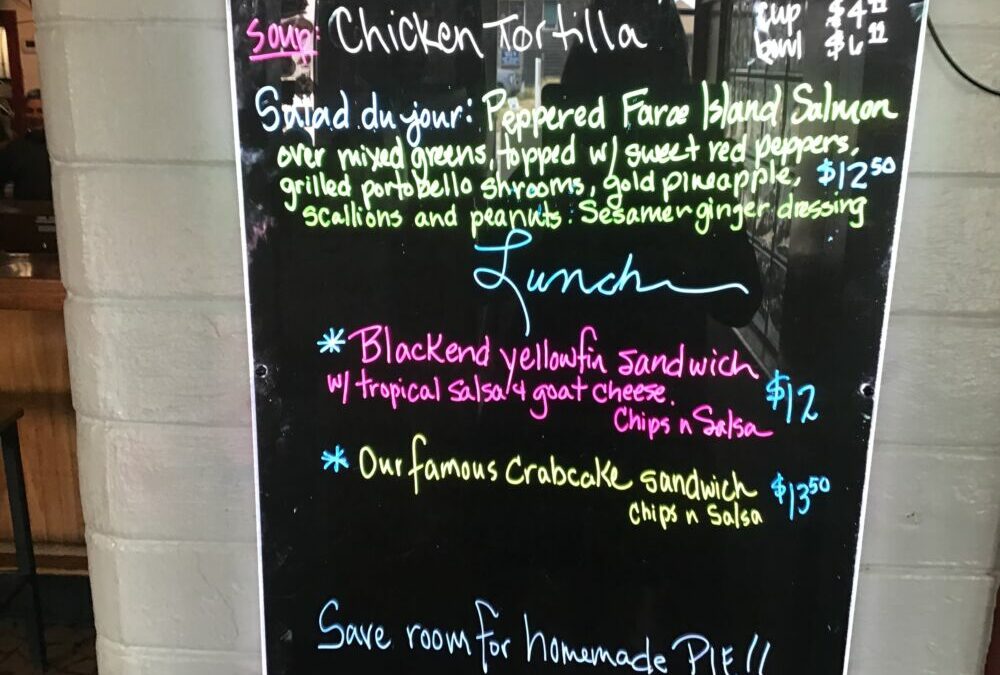 Soup: Chicken Tortilla
cup $4
bowl $6
Salad du jour: Peppered Faroe Island Salmon
over mixed greens, topped w/ sweet red peppers,
grilled portobello shrooms, gold pineapple, $12.50
scallions and peanuts. Sesame ginger dressing
Lunch
* Blackend yellowfin sandwich
w/ tropical salsa & goat cheese. $12
Chips n Salsa
* Our famous Crabcake sandwich $13.50
chips n Salsa
Save room for homemade PIE!!